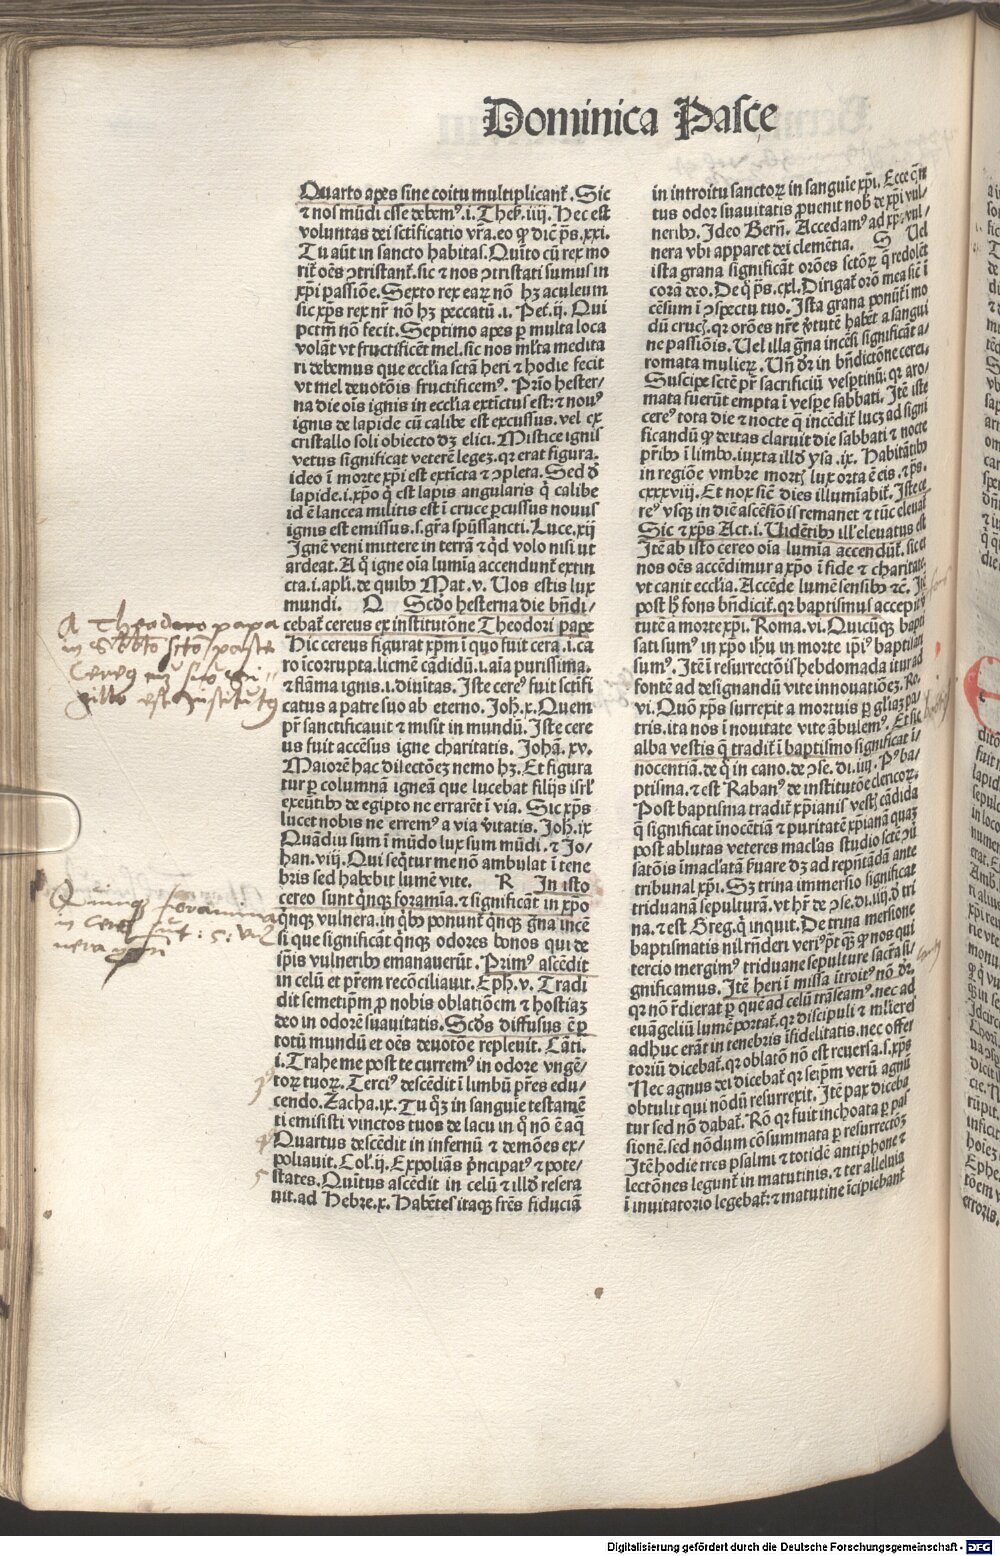 Dominica Pasce
Quarto apes sine coitu multiplicant̄. Sic
⁊ nos mūdi esse debemꝰ .i. Thes̄. iiii. Hec est
voluntas dei sctificatio vr̄a. eo ꝙ dic̄ ps̄. xxi.
Tu aūt in sancto habitas. Quīto cū rex mo
rit̄ oēs ↄtristant̄. sic ⁊ nos ↄtristati sumus in
xp̄i passiōe. Sexto rex earꝝ nō hꝫ aculeum
sic xp̄s rex nr̄ nō hꝫ peccatū .i. Pet̄. ij. Qui
pctm̄ nō fecit. Septimo apes ꝑ multa loca
volāt vt fructificēt mel. sic nos ml̄ta medita
ri debemus que ecclīa sctā heri ⁊ hodie fecit
vt mel deuotōis fructificemꝰ. Prīo hester/
na die oīs ignis in ecclīa extīctus est: ⁊ nouꝰ
ignis de lapide cū calibe est excussus. vel ex
cristallo soli obiecto dꝫ elici. Mistice ignis
vetus significat veterē legeꝫ. qr erat figura.
ideo ī morte xp̄i est extīcta ⁊ ↄpleta. Sed d̄
lapide .i. xp̄o q̄ est lapis angularis q̄ calibe
id ē lancea militis est ī cruce ꝑcussus nouus
ignis est emissus .s. gr̄a spūssancti. Luce. xij
Ignē veni mittere in terrā ⁊ qd volo nisi ut
ardeat. A q̄ igne oīa lumīa accendunt̄ extin
cta .i. apl̄i. de quibꝰ Mat. v. Uos estis lux
mundi. Q Scdo hesterna die bn̄di/
cebat̄ cereus ex institutōne Theodori pape
Hic cereus figurat xp̄m ī quo fuit cera .i. ca
ro īcorrupta. licmē cādidū .i. aīa purissima.
⁊ flāma ignis .i. diuītas. Iste cereꝰ fuit sctīfi
catus a patre suo ab eterno. Joh̄. x. Quem
pr̄ sanctificauit ⁊ misit in mundū. Iste cere
us fuit accēsus igne charitatis. Johā. xv.
Maiorē hac dilectōeꝫ nemo hꝫ. Et figura
tur ꝑ columnā igneā que lucebat filijs isrl̄
exeūtibꝰ de egipto ne errarēt ī via. Sic xp̄s
lucet nobis ne erremꝰ a via v̄itatis. Joh̄. ix
Quādiu sum ī mūdo lux sum mūdi. ⁊ Jo/
han. viii. Qui seq̄tur me nō ambulat ī tene
bris sed habebit lumē vite. R In isto
cereo sunt qn̄qꝫ foramīa. ⁊ significāt in xp̄o
qn̄qꝫ vulnera. in q̄bꝰ ponunt̄ qn̄qꝫ gn̄a incē
si que significāt qn̄qꝫ odores bonos qui de
ip̄is vulneribꝰ emanauerūt. Primꝰ ascēdit
in celū ⁊ pr̄em recōciliauit. Eph̄. v. Tradi
dit semetip̄m ꝓ nobis oblatiōem ⁊ hostiaꝫ
deo in odorē suauitatis. Scds diffusus ē ꝑ
totū mundū ⁊ oēs deuotōe repleuit. Cāti.
.i. Trahe me post te curremꝰ in odore vngē/
torꝝ tuorꝝ. Terciꝰ descēdit ī limbū pr̄es edu/
cendo. Zacha. ix. Tu qꝫ in sanguie testamē
ti emisisti vinctos tuos de lacu in q̄ nō ē aq̄
Quartus descēdit in infernū ⁊ demōes ex/
poliauit. Col̄. ij. Expoliās pn̄cipatꝰ ⁊ pote/
states. Quītus ascēdit in celū ⁊ illd̄ resera
uit. ad Hebre. x. Habētes itaqꝫ fr̄es fiduciā
in introitu sanctorꝝ in sanguīe xp̄i. Ecce qm̄
tus odor suauitatis ꝓuenit nob̄ de xp̄i vul/
neribꝰ. Ideo Bern̄. Accedamꝰ ad xp̄i vul/
nera vbi apparet dei clemētia. S Ul
ista grana significāt orōes sctōrꝝ q̄ redolēt
corā deo. De q̄ ps̄. cxl. Dirigat̄ orō mea sic̄ ī
cēsum ī ↄspectu tuo. Ista grana ponūt̄ ī mo
dū crucꝭ. qr orōes nr̄e v̄tutē habēt a sangui
ne passiōis. Uel illa gn̄a incēsi significāt a/
romata mulierꝝ. Un̄ dr̄ in bn̄dictōne cerei.
Suscipe sctē pr̄ sacrificiū vesptinū. qr aro/
mata fuerūt empta ī vespe sabbati. Itē iste
cereꝰ tota die ⁊ nocte q̄ incēdit̄ lucꝫ ad signi
ficandū ꝙ deitas claruit die sabbati ⁊ nocte
pr̄ibꝰ ī limbo. iuxta illd̄ ysa. ix. Habitātibꝰ
in regiōe vmbre mortꝭ lux orta ē eis. ⁊ ps̄.
cxxxviij. Et nox sic̄ dies illumīabit̄. Iste ce
reꝰ vsqꝫ in diē ascēsiōis remanet ⁊ tūc eleuat̄
Sic ⁊ xp̄s Act. i. Uidētibꝰ ill̄ eleuatus est
Itē ab isto cereo oīa lumīa accendūt̄. sic et
nos oēs accēdimur a xp̄o ī fide ⁊ charitate
vt canit ecclīa. Accēde lumē sensibꝰ ⁊c. Itē
post h̄ fons bn̄dicit̄. qr baptismus accepit v̄
tutē a morte xp̄i. Roma. vi. Quicūqꝫ bapti
sati sumꝰ in xp̄o ihū in morte ip̄iꝰ baptisati
sumꝰ. Itē ī resurrectōis hebdomada itur ad
fontē ad designandū vite innouatiōeꝫ. Ro.
vi. Quō xp̄s surrexit a mortuis ꝑ gliaꝫ pa/
tris. ita nos ī nouitate vite ābulemꝰ. Et sic
alba vestis q̄ tradit̄ ī baptismo significat ī/
nocentiā. de q̄ in cano. de ↄse. di. iiij. Pꝰ ba/
ptisma. ⁊ est Rabanꝰ de institutōe clericorꝝ.
Post baptisma tradit̄ xp̄ianis vestꝭ cādida
q̄ significat īnocētiā ⁊ puritatē xp̄iana quaꝫ
post ablutas veteres macl̄as studio sctē ↄū
satōis īmacl̄atā huare dꝫ ad repn̄tādā ante
tribunal xp̄i. Sꝫ trina immersio significat
triduanā sepulturā. vt hr̄ de ↄse. di. iiij. d̄ tri
na. ⁊ est Greg. q̄ inquit. De trina mersione
baptismatis nil rn̄deri veriꝰ pt̄ qꝫ ꝙ nos qui
tercio mergimꝰ triduane sepulture sacr̄a si/
gnificamus. Itē heri ī missa ītroitꝰ nō dr̄.
qr nō r̄dierat ꝑ que ad celū trāseamꝰ. nec ad
euāgeliū lumē portat̄. qr discipuli ⁊ ml̄ieres
adhuc erāt in tenebris īfidelitatis. nec offer
toriū dicebat̄. qr oblatō nō est reuersa .s. xp̄s
Nec agnus dei dicebat̄. qr seip̄m verū agnū
obtulit qui nōdū resurrexit. Itē pax diceba
tur sed nō dabat̄. Rō qr fuit inchoata ꝑ pas
sionē. sed nōdum cōsummata ꝑ resurrectōꝫ
Itē hodie tres psalmi ⁊ totidē antiphone ⁊
lectōnes legunt̄ in matutinis. ⁊ ter alleluia
ī inuitatorio legebat̄: ⁊ matutine īcipiebant̄
A Theodoro papa
in Sabbato scto pasce
Cereꝰ cū suo si=
gillo est institutꝰ
Quinqꝫ foramina
in cereo sūt: 5: vul
nera
3ꝰ
4ꝰ
5
Digitalisierung gefördert durch die Deutsche Forschungsgemeinschaft - DFG